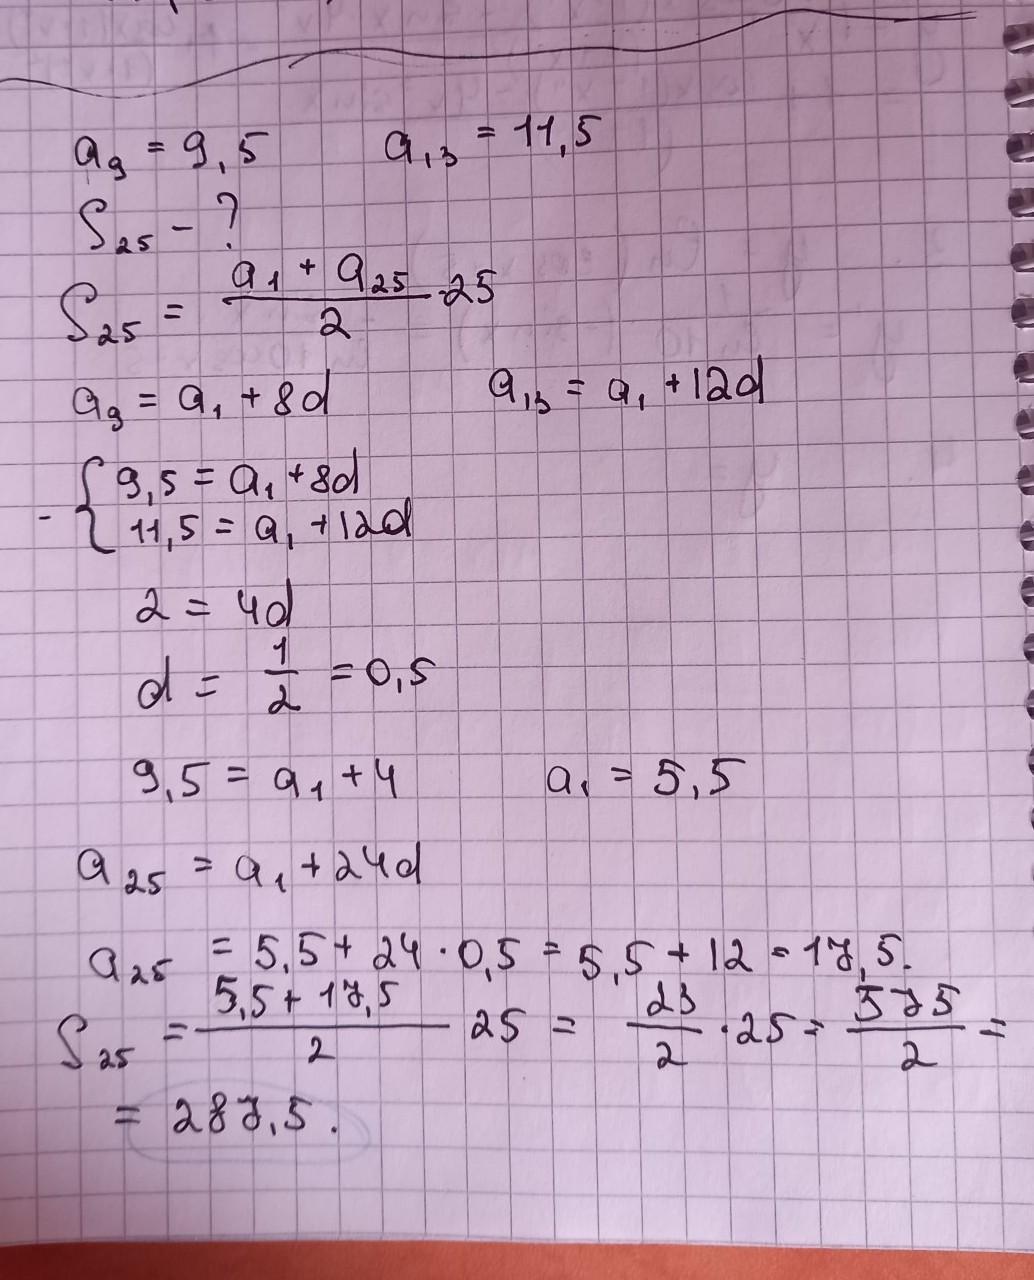 a₉ = 9,5 a₁₃ = 11,5
S₂₅ - ?
S₂₅ = (a₁ + a₂₅)/2 · 25
a₉ = a₁ + 8d a₁₃ = a₁ + 12d
- { 9,5 = a₁ + 8d
11,5 = a₁ + 12d
2 = 4d
d = 1/2 = 0,5
9,5 = a₁ + 4 a₁ = 5,5
a₂₅ = a₁ + 24d
a₂₅ = 5,5 + 24 · 0,5 = 5,5 + 12 = 17,5.
S₂₅ = (5,5 + 17,5)/2 25 = 23/2 · 25 = 575/2 =
= 287,5.